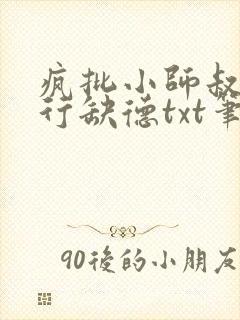 疯批小師叔
行缺德txt筆
90後的小朋友